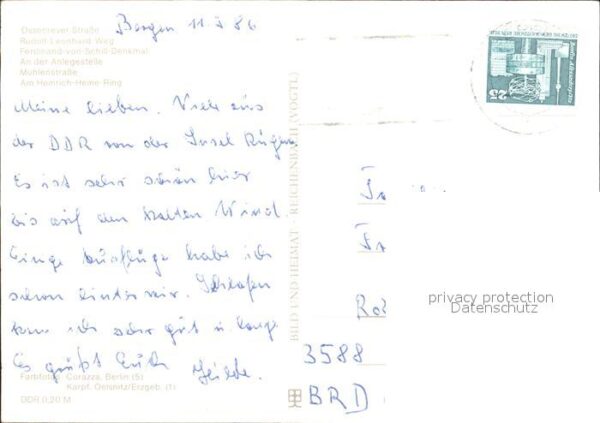 Ossenreyer-Straße
Rudolf-Leonhard-Weg
Ferdinand-von-Schill-Denkmal
An der Anlegestelle
Mühlenstraße
Am Heinrich-Heine-Ring
Bergen 11 86
Meine Lieben. Viele aus
der DDR von der Insel Rügen.
Es ist sehr schön hier
bis auf den kalten Wind
Einge Ausflüge habe ich
schon hinter mir. Schlafen
kann ich sehr gut u. lange
Es grüßt Euch
Farbfotos: Corazza, Berlin (5)
Karpf, Oelsnitz/Erzgeb. (1)
DDR 0,20 M
BILD UND HEIMAT · REICHENBACH (VOGTL)
25
3588
BRD
privacy protection
Datenschutz